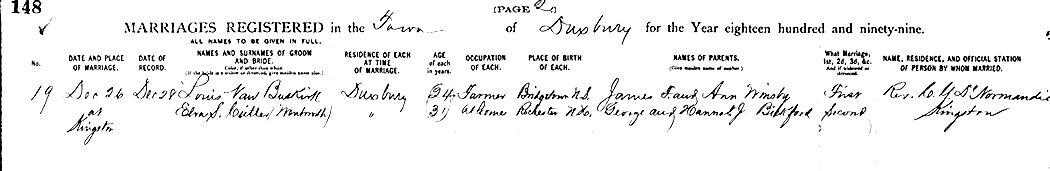 148
[PAGE 2]
MARRIAGES REGISTERED in the Town of Duxbury for the Year eighteen hundred and ninety-nine.
ALL NAMES TO BE GIVEN IN FULL.
No. DATE AND PLACE OF MARRIAGE. DATE OF RECORD. NAMES AND SURNAMES OF GROOM AND BRIDE. (If the bride is a widow or divorced, give maiden name also.) RESIDENCE OF EACH AT TIME OF MARRIAGE. AGE of each in years. OCCUPATION OF EACH. PLACE OF BIRTH OF EACH. NAMES OF PARENTS. (Give maiden name of mother.) What Marriage, 1st, 2d, 3d, &c. And if widowed or divorced. NAME, RESIDENCE, AND OFFICIAL STATION OF PERSON BY WHOM MARRIED.
19 Dec 26 Dec 28 Louis Van Buskirk Duxbury 34 Farmer Bridgetown N.S. James F. and Ann Winsby First Rev. C. Y. De Normandie
at Elva S. (Wentworth) " 31 at home Rochester N.H. George and Hannah J Bickford Second Kingston
Kingston